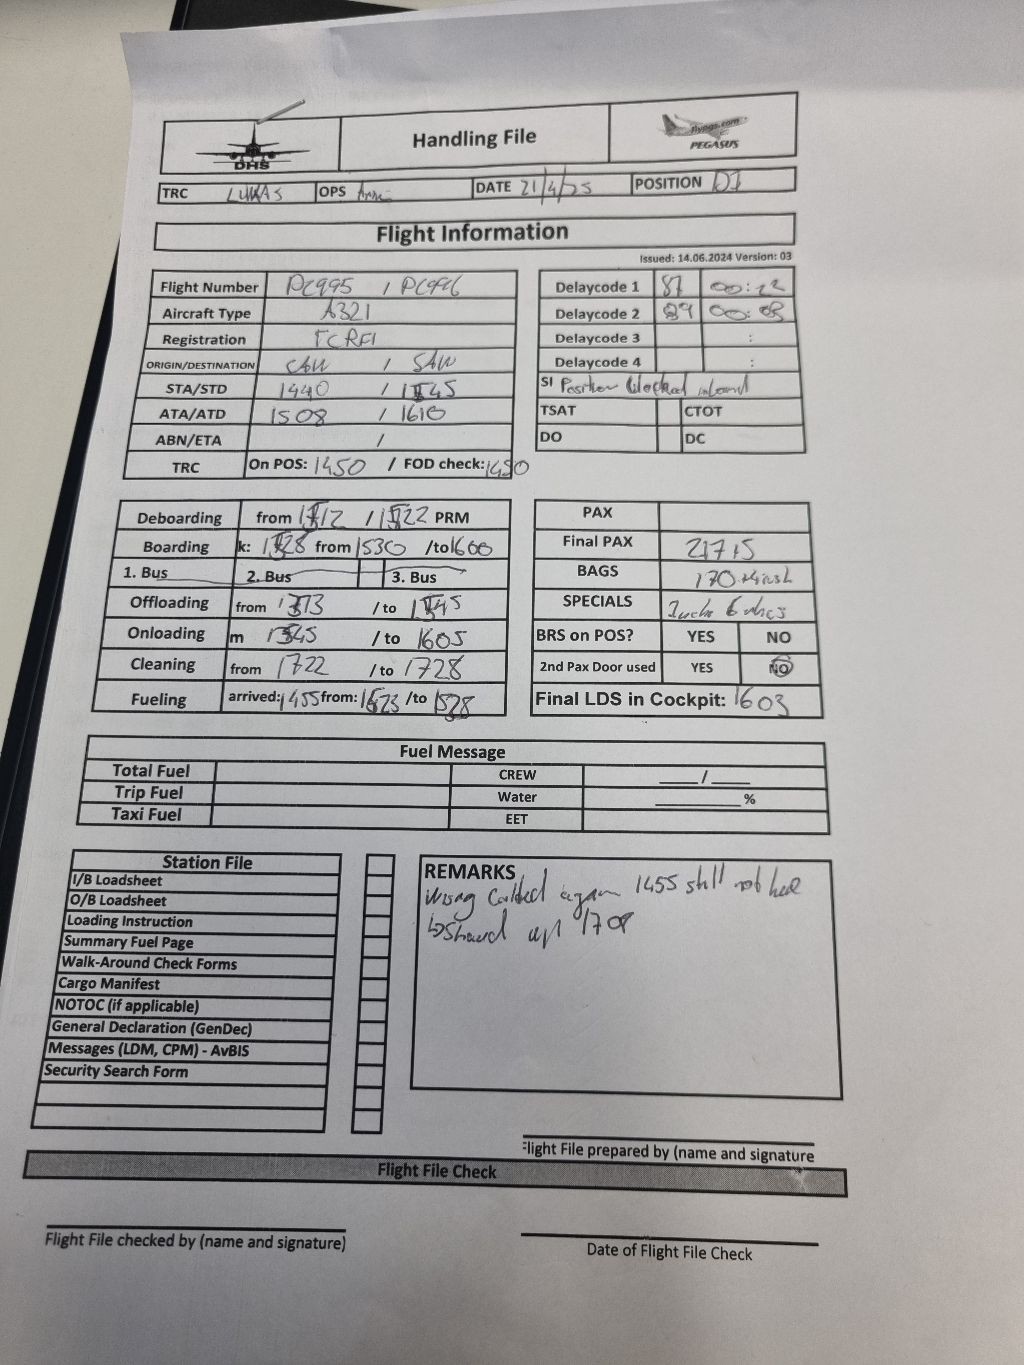 DHS
Handling File
flypgs.com
PEGASUS
TRC LUKAS OPS DATE 21/4/25 POSITION D1
Flight Information
Issued: 14.06.2024 Version: 03
Flight Number PC995 / PC996
Aircraft Type A321
Registration TCRFI
ORIGIN/DESTINATION SAW / SAW
STA/STD 1440 / 1545
ATA/ATD 1508 / 1610
ABN/ETA /
TRC On POS: 1450 / FOD check: 1450
Delaycode 1 87
Delaycode 2 89
Delaycode 3 :
Delaycode 4 :
SI Position blocked inbound
TSAT CTOT
DO DC
Deboarding from 1512 / 1522 PRM
Boarding k: 1528 from 1530 /to 1600
1. Bus 2. Bus 3. Bus
Offloading from 1513 / to 1545
Onloading m 1545 / to 1605
Cleaning from 1722 / to 1728
Fueling arrived: 1455 from: 1523 /to 1528
PAX
Final PAX 217+5
BAGS 170
SPECIALS
BRS on POS? YES NO
2nd Pax Door used YES NO
Final LDS in Cockpit: 1603
Fuel Message
Total Fuel CREW ____/____
Trip Fuel Water ________ %
Taxi Fuel EET
Station File
I/B Loadsheet
O/B Loadsheet
Loading Instruction
Summary Fuel Page
Walk-Around Check Forms
Cargo Manifest
NOTOC (if applicable)
General Declaration (GenDec)
Messages (LDM, CPM) - AvBIS
Security Search Form
REMARKS
called again 1455 still not here
1708
Flight File prepared by (name and signature
Flight File Check
Flight File checked by (name and signature)
Date of Flight File Check